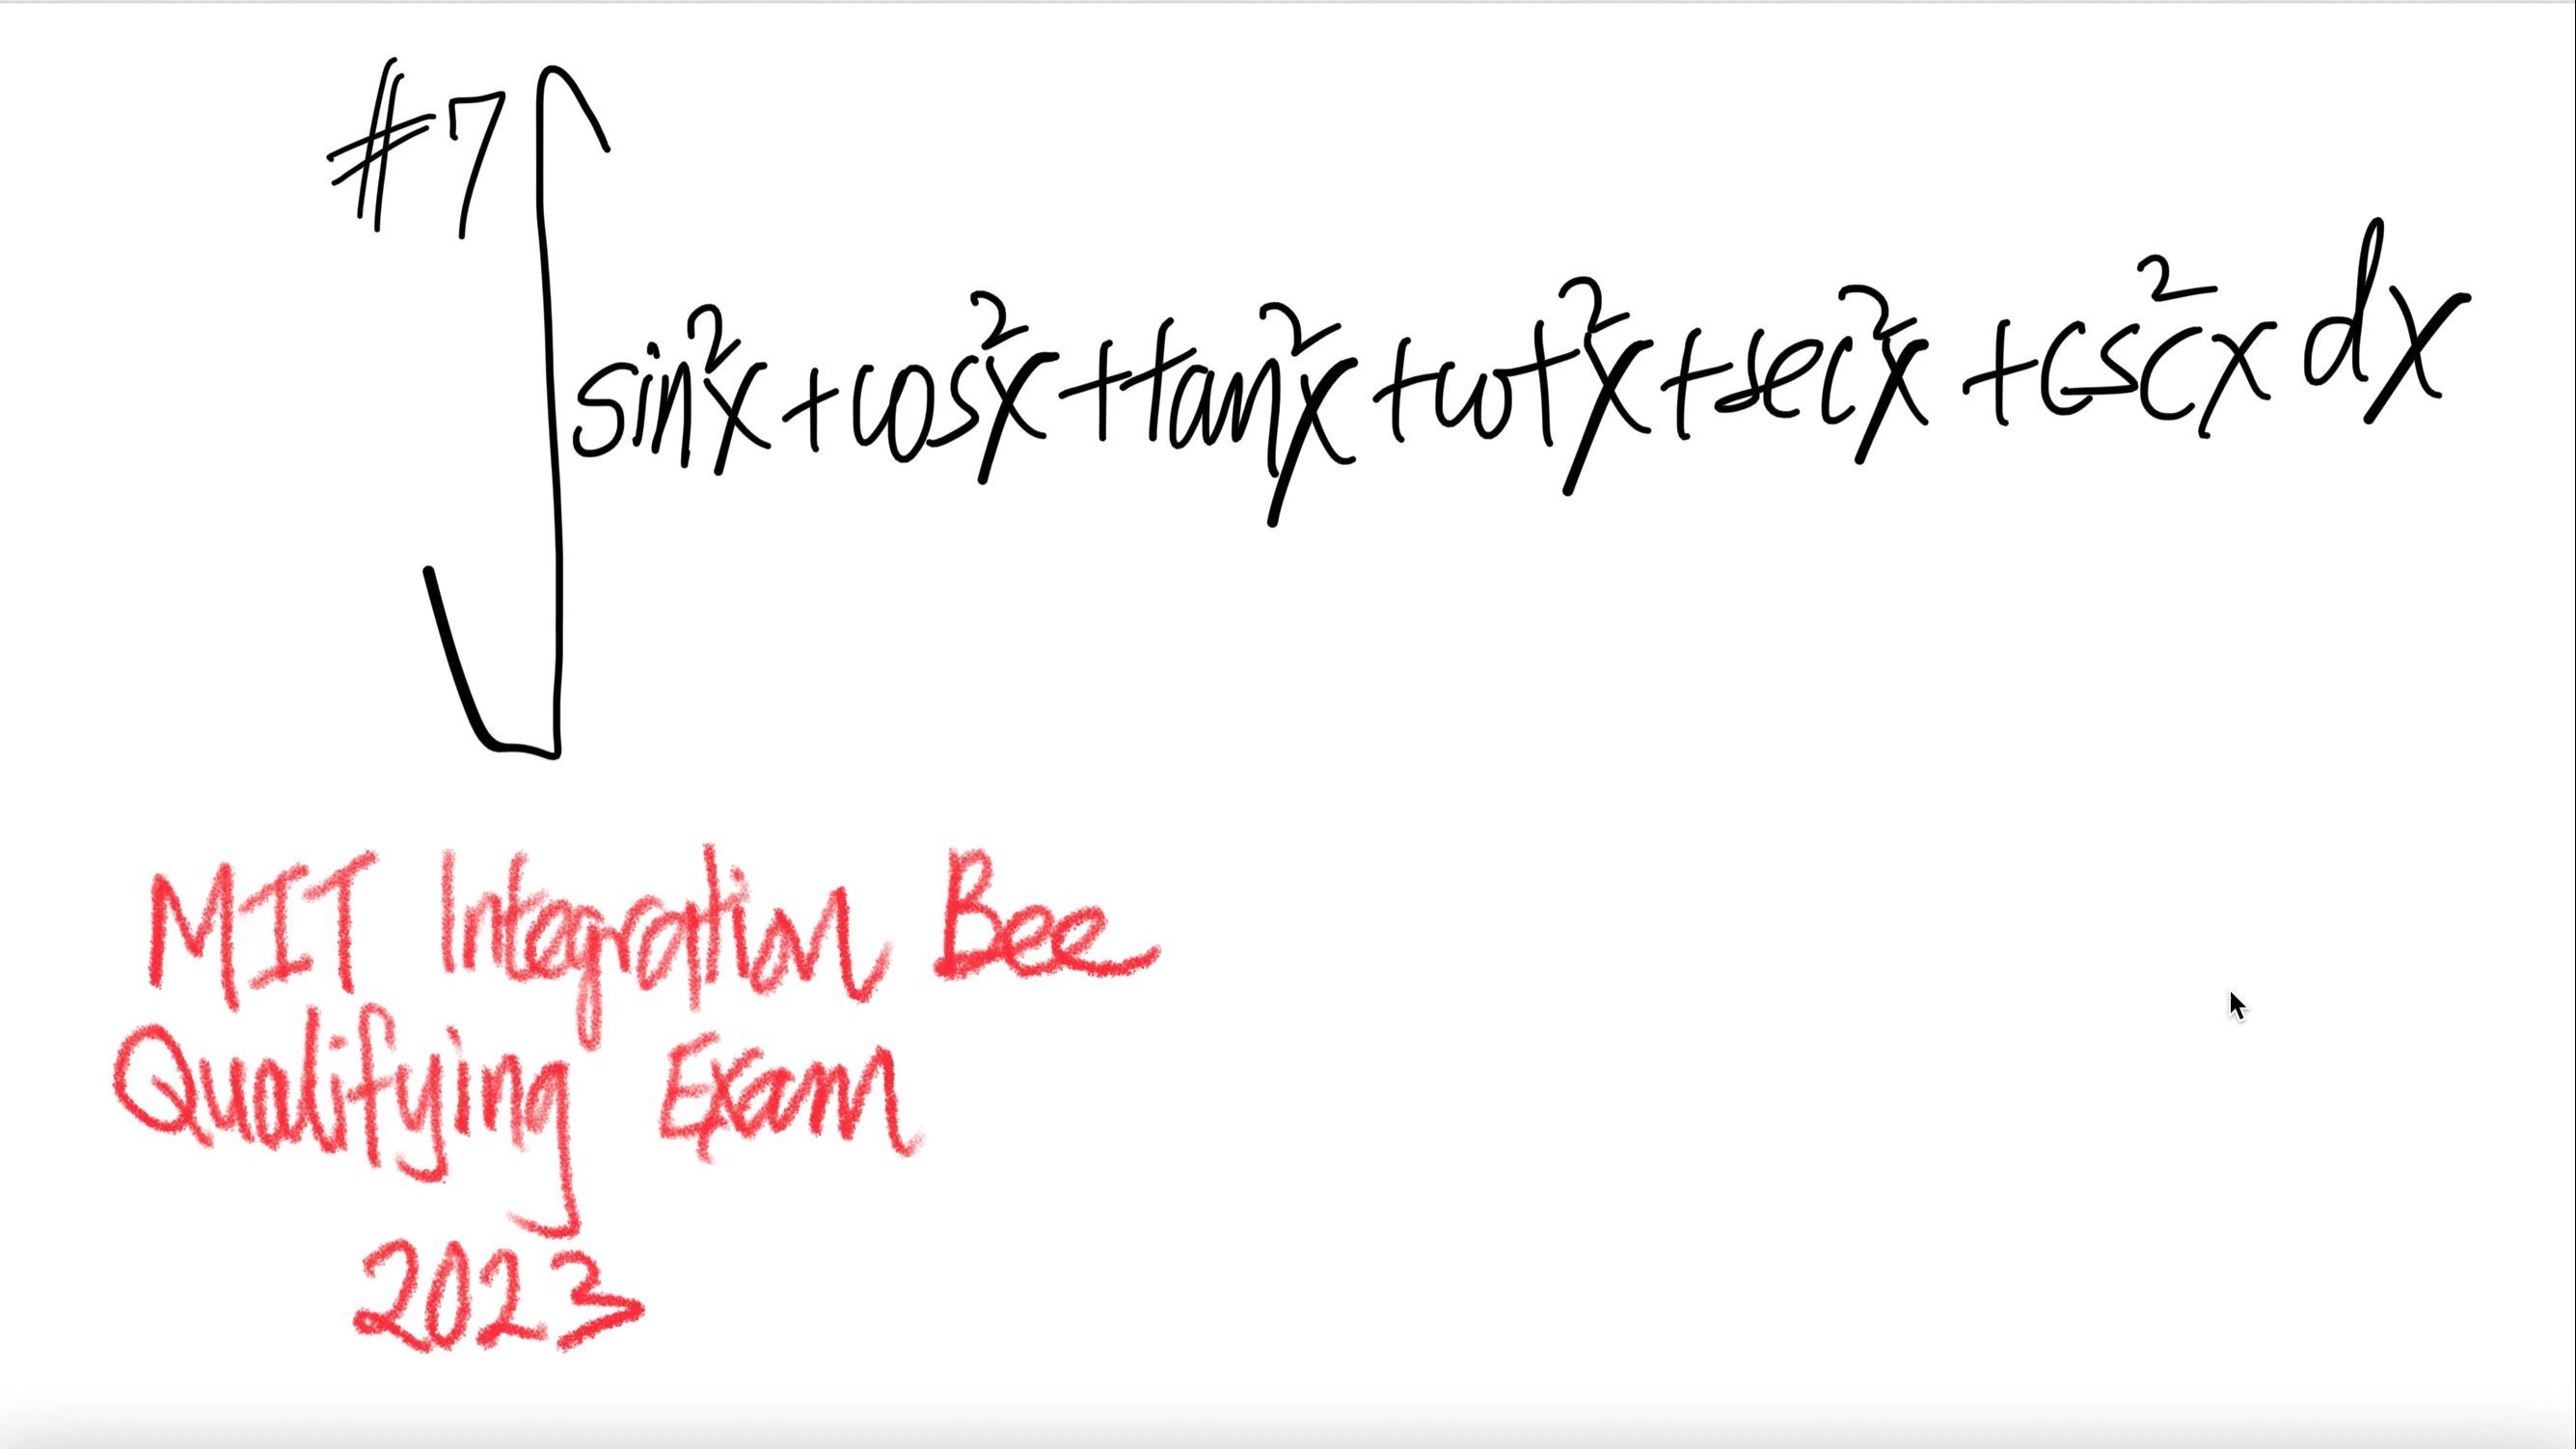 #7 ∫ sin²x + cos²x + tan²x + cot²x + sec²x + csc²x dx
MIT Integration Bee
Qualifying Exam
2023